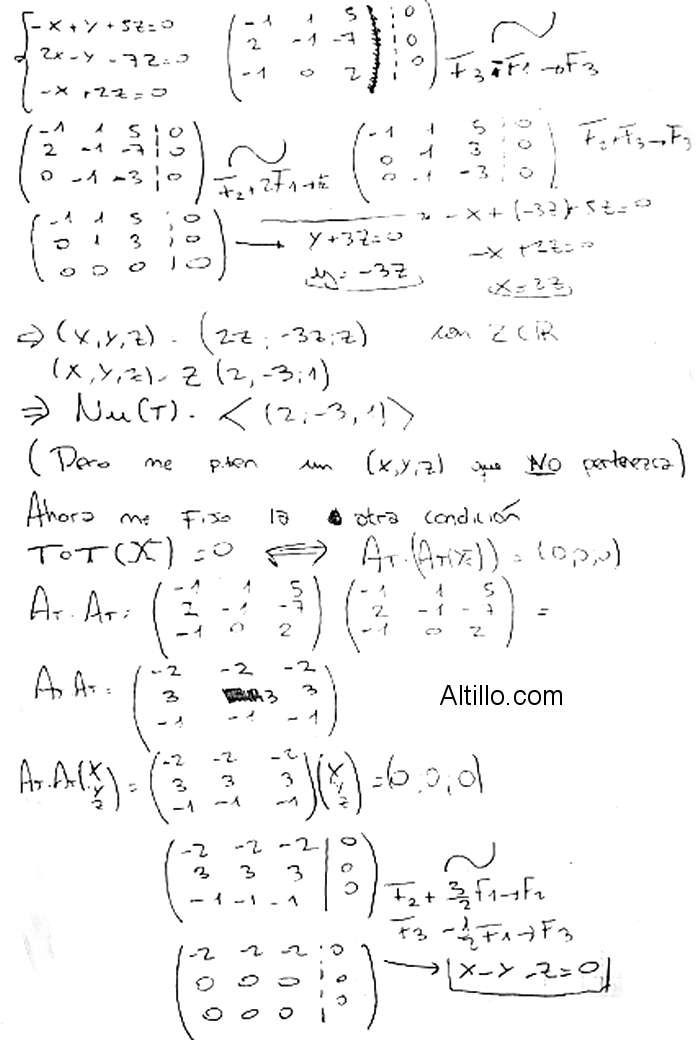 -x + y + 5z = 0
2x - y - 7z = 0
-x + 2z = 0
-1 1 5 | 0
2 -1 -7 | 0
-1 0 2 | 0
F3 - F1 → F3
-1 1 5 | 0
2 -1 -7 | 0
0 -1 -3 | 0
F2 + 2F1 →
-1 1 5 | 0
0 1 3 | 0
0 -1 -3 | 0
F2 + F3 → F3
-1 1 5 | 0
0 1 3 | 0
0 0 0 | 0
→ y + 3z = 0
y = -3z
-x + (-3z) + 5z = 0
-x + 2z = 0
x = 2z
⇒ (x, y, z) = (2z; -3z; z) con z ∈ R
(x, y, z) = z (2, -3; 1)
⇒ Nu(T) = < (2; -3, 1) >
(Pero me piden un (x, y, z) que NO pertenezca)
Ahora me fijo la otra condición
ToT(x) = 0 ⟺ AT.(AT(x)) = (0,0,0)
AT.AT =
-1 1 5
2 -1 -7
-1 0 2
-1 1 5
2 -1 -7
-1 0 2
=
AT AT =
-2 -2 -2
3 3 3
-1 -1 -1
Altillo.com
AT.AT (x y z) =
-2 -2 -2
3 3 3
-1 -1 -1
(x y z) = (0, 0, 0)
-2 -2 -2 | 0
3 3 3 | 0
-1 -1 -1 | 0
F2 + 3/2 F1 → F2
F3 - 1/2 F1 → F3
-2 -2 -2 | 0
0 0 0 | 0
0 0 0 | 0
→ x - y - z = 0